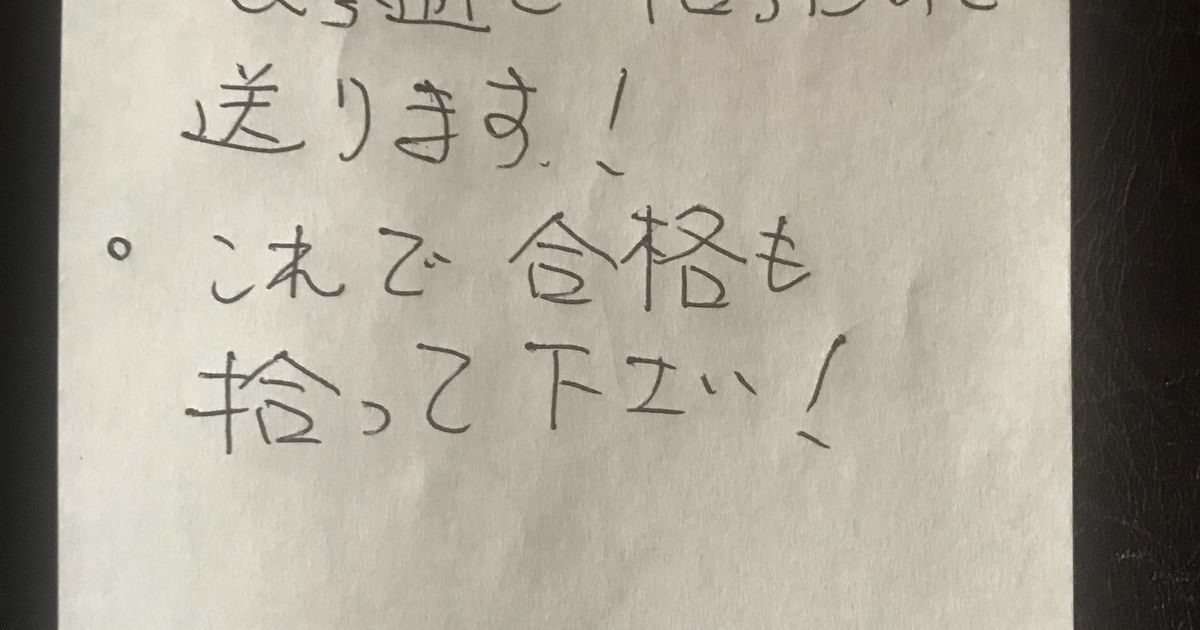 送ります!
。これで合格も
拾って下さい!